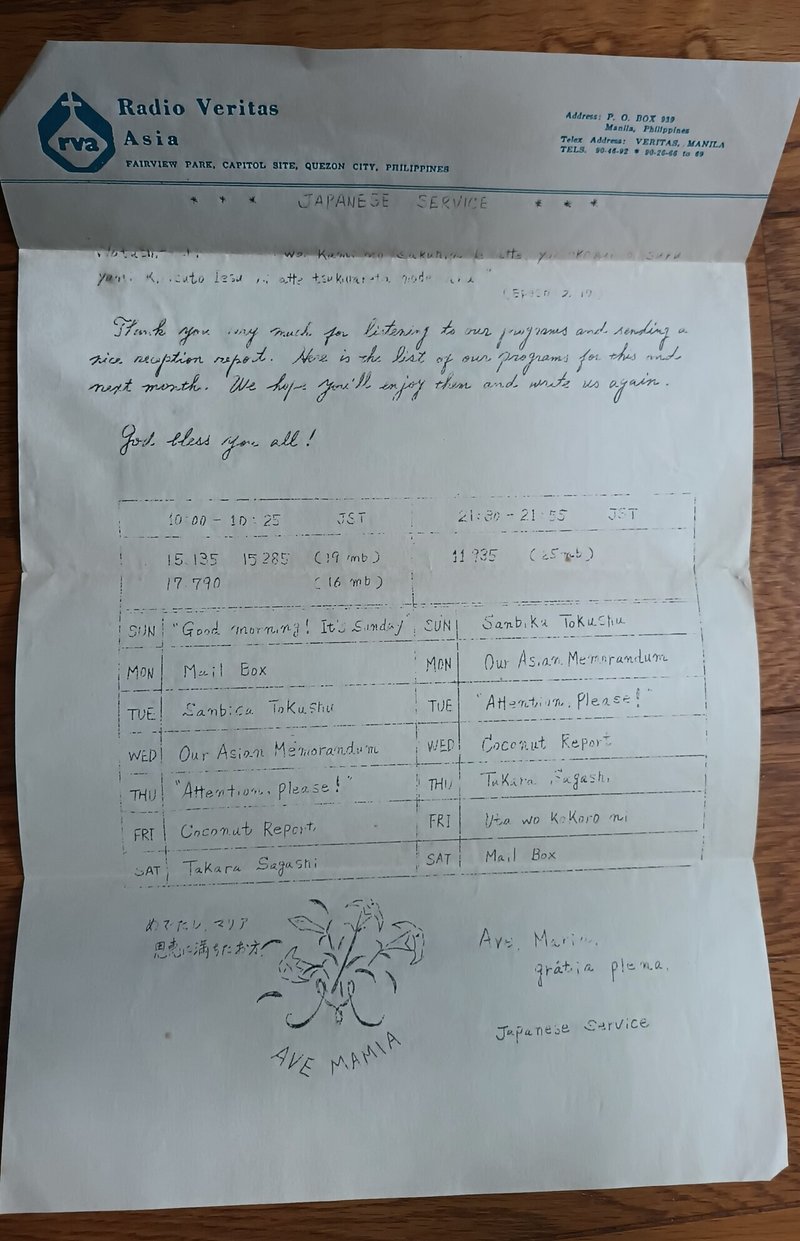 rva
Radio Veritas
Asia
FAIRVIEW PARK, CAPITOL SITE, QUEZON CITY, PHILIPPINES
Address: P. O. BOX 939
Manila, Philippines
Telex Address: VERITAS, MANILA
TELS. 90-46-92 * 90-26-66 to 69
* * * JAPANESE SERVICE * * *
wo Kami no
Iesu ni atte tsukurareta node
Thank you very much for listening to our programs and sending a
nice reception report. Here is the list of our programs for this and
next month. We hope you'll enjoy them and write us again.
God bless you all!
10:00 - 10:25 JST
21:30 - 21:55 JST
15.135 15.285 (19 mb)
17.790 (16 mb)
11.935 (25 mb)
SUN "Good morning! It's Sunday" SUN Sanbika Tokushu
MON Mail Box MON Our Asian Memorandum
TUE Sanbica Tokushu TUE "Attention, Please!"
WED Our Asian Memorandum WED Coconut Report
THU "Attention, Please!" THU Takara Sagashi
FRI Coconut Report FRI Uta wo Kokoro ni
SAT Takara Sagashi SAT Mail Box
めでたし、マリア
恩恵に満ちたお方
AVE MAMIA
Ave, Maria,
grátia plena.
Japanese Service